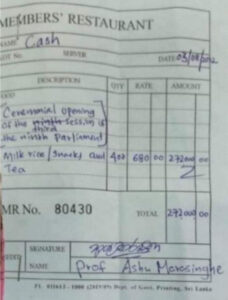 MEMBERS' RESTAURANT
NAME Cash
SERVER DATE 03/08/2022
DESCRIPTION QTY RATE AMOUNT
FOOD
Ceremonial Opening
of the ninth session
third
the ninth parliament
Milk rice / Snacks and 400 680 00 272000 00
Tea
MR No. 80430 TOTAL 272000 00
SIGNATURE
NAME Prof Ashu Marasinghe
Dept. of Govt. Printing, Sri Lanka